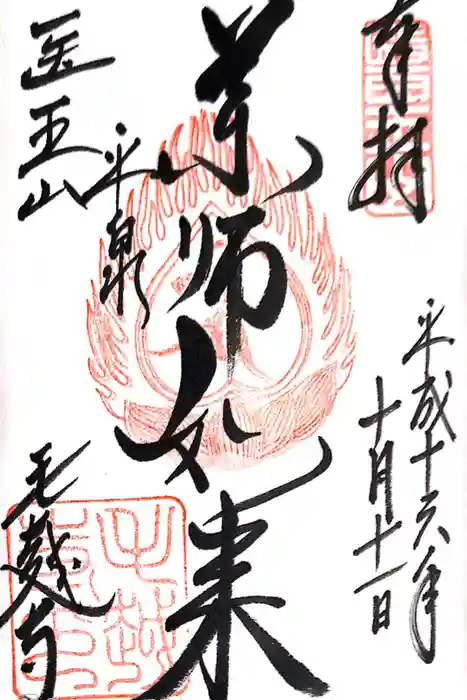 奉拝
平成十六年
十月十一日
薬師如来
平泉
医王山
毛越寺